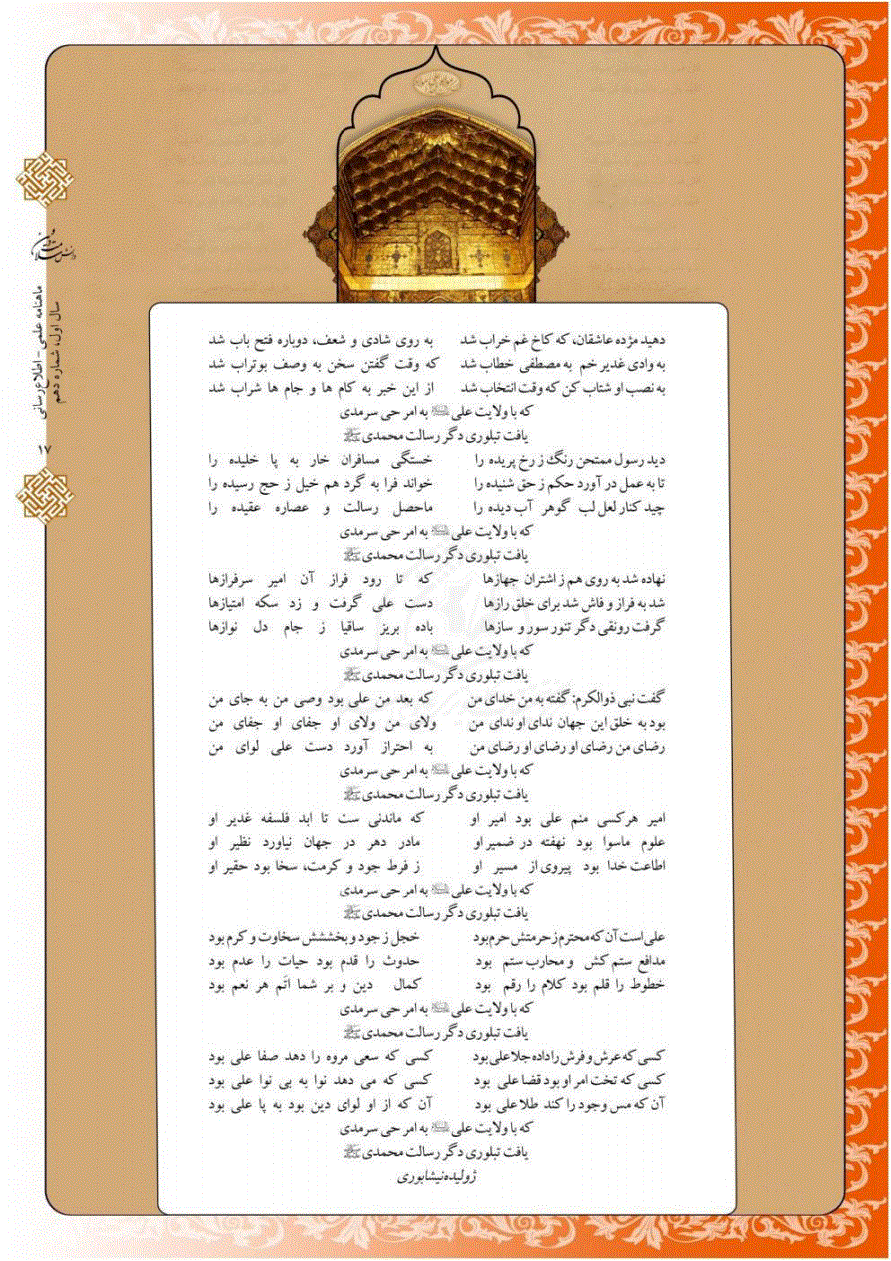 دهید مژده عاشقان، که کاخ غم خراب شد به روی شادی و شعف، دوباره فتح باب شد
به وادی غدیر خم به مصطفی خطاب شد که وقت گفتن سخن به وصف بوتراب شد
به نصب او شتاب کن که وقت انتخاب شد از این خبر به کام ها و جام ها شراب شد
که با ولایت علی به امر حی سرمدی
یافت تبلوری دگر رسالت محمدی
دید رسول ممتحن رنگ ز رخ پریده را خستگی مسافران خار به پا خلیده را
تا به عمل در آورد حکم ز حق شنیده را خواند فرا به گرد هم خیل ز حج رسیده را
چید کنار لعل لب گوهر آب دیده را ماحصل رسالت و عصاره عقیده را
که با ولایت علی به امر حی سرمدی
یافت تبلوری دگر رسالت محمدی
نهاده شد به روی هم ز اشتران جهازها که تا رود فراز آن امیر سرفرازها
شد به فراز و فاش شد برای خلق رازها دست علی گرفت و زد سکه امتیازها
گرفت رونقی دگر تنور سور و سازها باده بریز ساقیا ز جام دل نوازها
که با ولایت علی به امر حی سرمدی
یافت تبلوری دگر رسالت محمدی
گفت نبی ذوالکرم: گفته به من خدای من که بعد من علی بود وصی من به جای من
بود به خلق این جهان ندای او ندای من ولای من ولای او جفای او جفای من
رضای من رضای او رضای او رضای من به احتراز آورد دست علی لوای من
که با ولایت علی به امر حی سرمدی
یافت تبلوری دگر رسالت محمدی
امیر هرکسی منم علی بود امیر او که ماندنی ست تا ابد فلسفه غدیر او
علوم ماسوا بود نهفته در ضمیر او مادر دهر در جهان نیاورد نظیر او
اطاعت خدا بود پیروی از مسیر او ز فرط جود و کرمت، سخا بود حقیر او
که با ولایت علی به امر حی سرمدی
یافت تبلوری دگر رسالت محمدی
علی است آن که محترم ز حرمتش حرم بود خجل ز جود و بخششش سخاوت و کرم بود
مدافع ستم کش و محارب ستم بود حدوث را قدم بود حیات را عدم بود
خطوط را قلم بود کلام را رقم بود کمال دین و بر شما اتَم هر نعم بود
که با ولایت علی به امر حی سرمدی
یافت تبلوری دگر رسالت محمدی
کسی که عرش و فرش را داده جلا علی بود کسی که سعی مروه را دهد صفا علی بود
کسی که تخت امر او بود قضا علی بود کسی که می دهد نوا به بی نوا علی بود
آن که مس وجود را کند طلا علی بود آن که از او لوای دین بود به پا علی بود
که با ولایت علی به امر حی سرمدی
یافت تبلوری دگر رسالت محمدی
ژولیده نیشابوری
ماهنامه علمی - اطلاع‌رسانی
سال اول، شماره دهم
۱۷